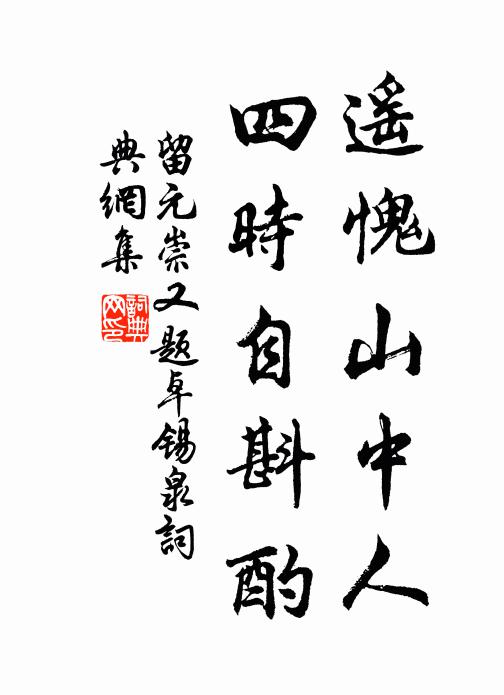 遥愧山中人
四時自斟酌
留元崇又題卓锡泉詞
典網集
詞典网印